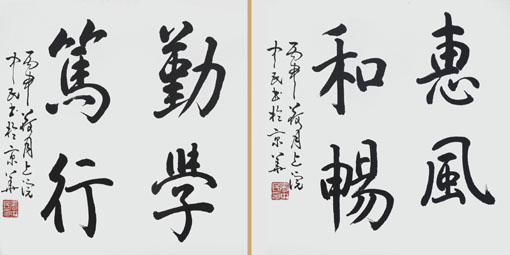 惠風
和暢
丙申荷月上浣
中民书於京華
勤學
篤行
丙申荷月上浣
中民书於京華